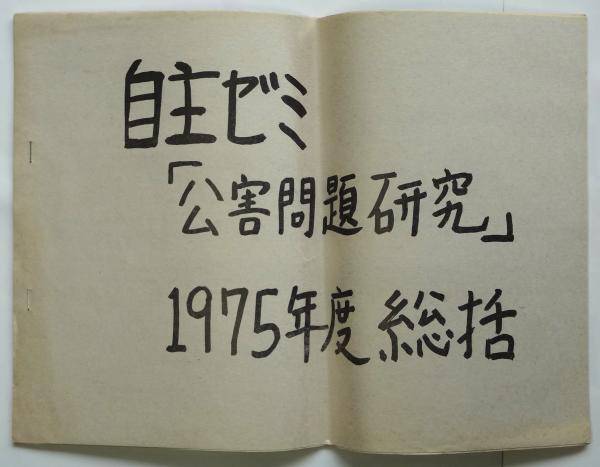 自主ゼミ
「公害問題研究」
1975年度総括